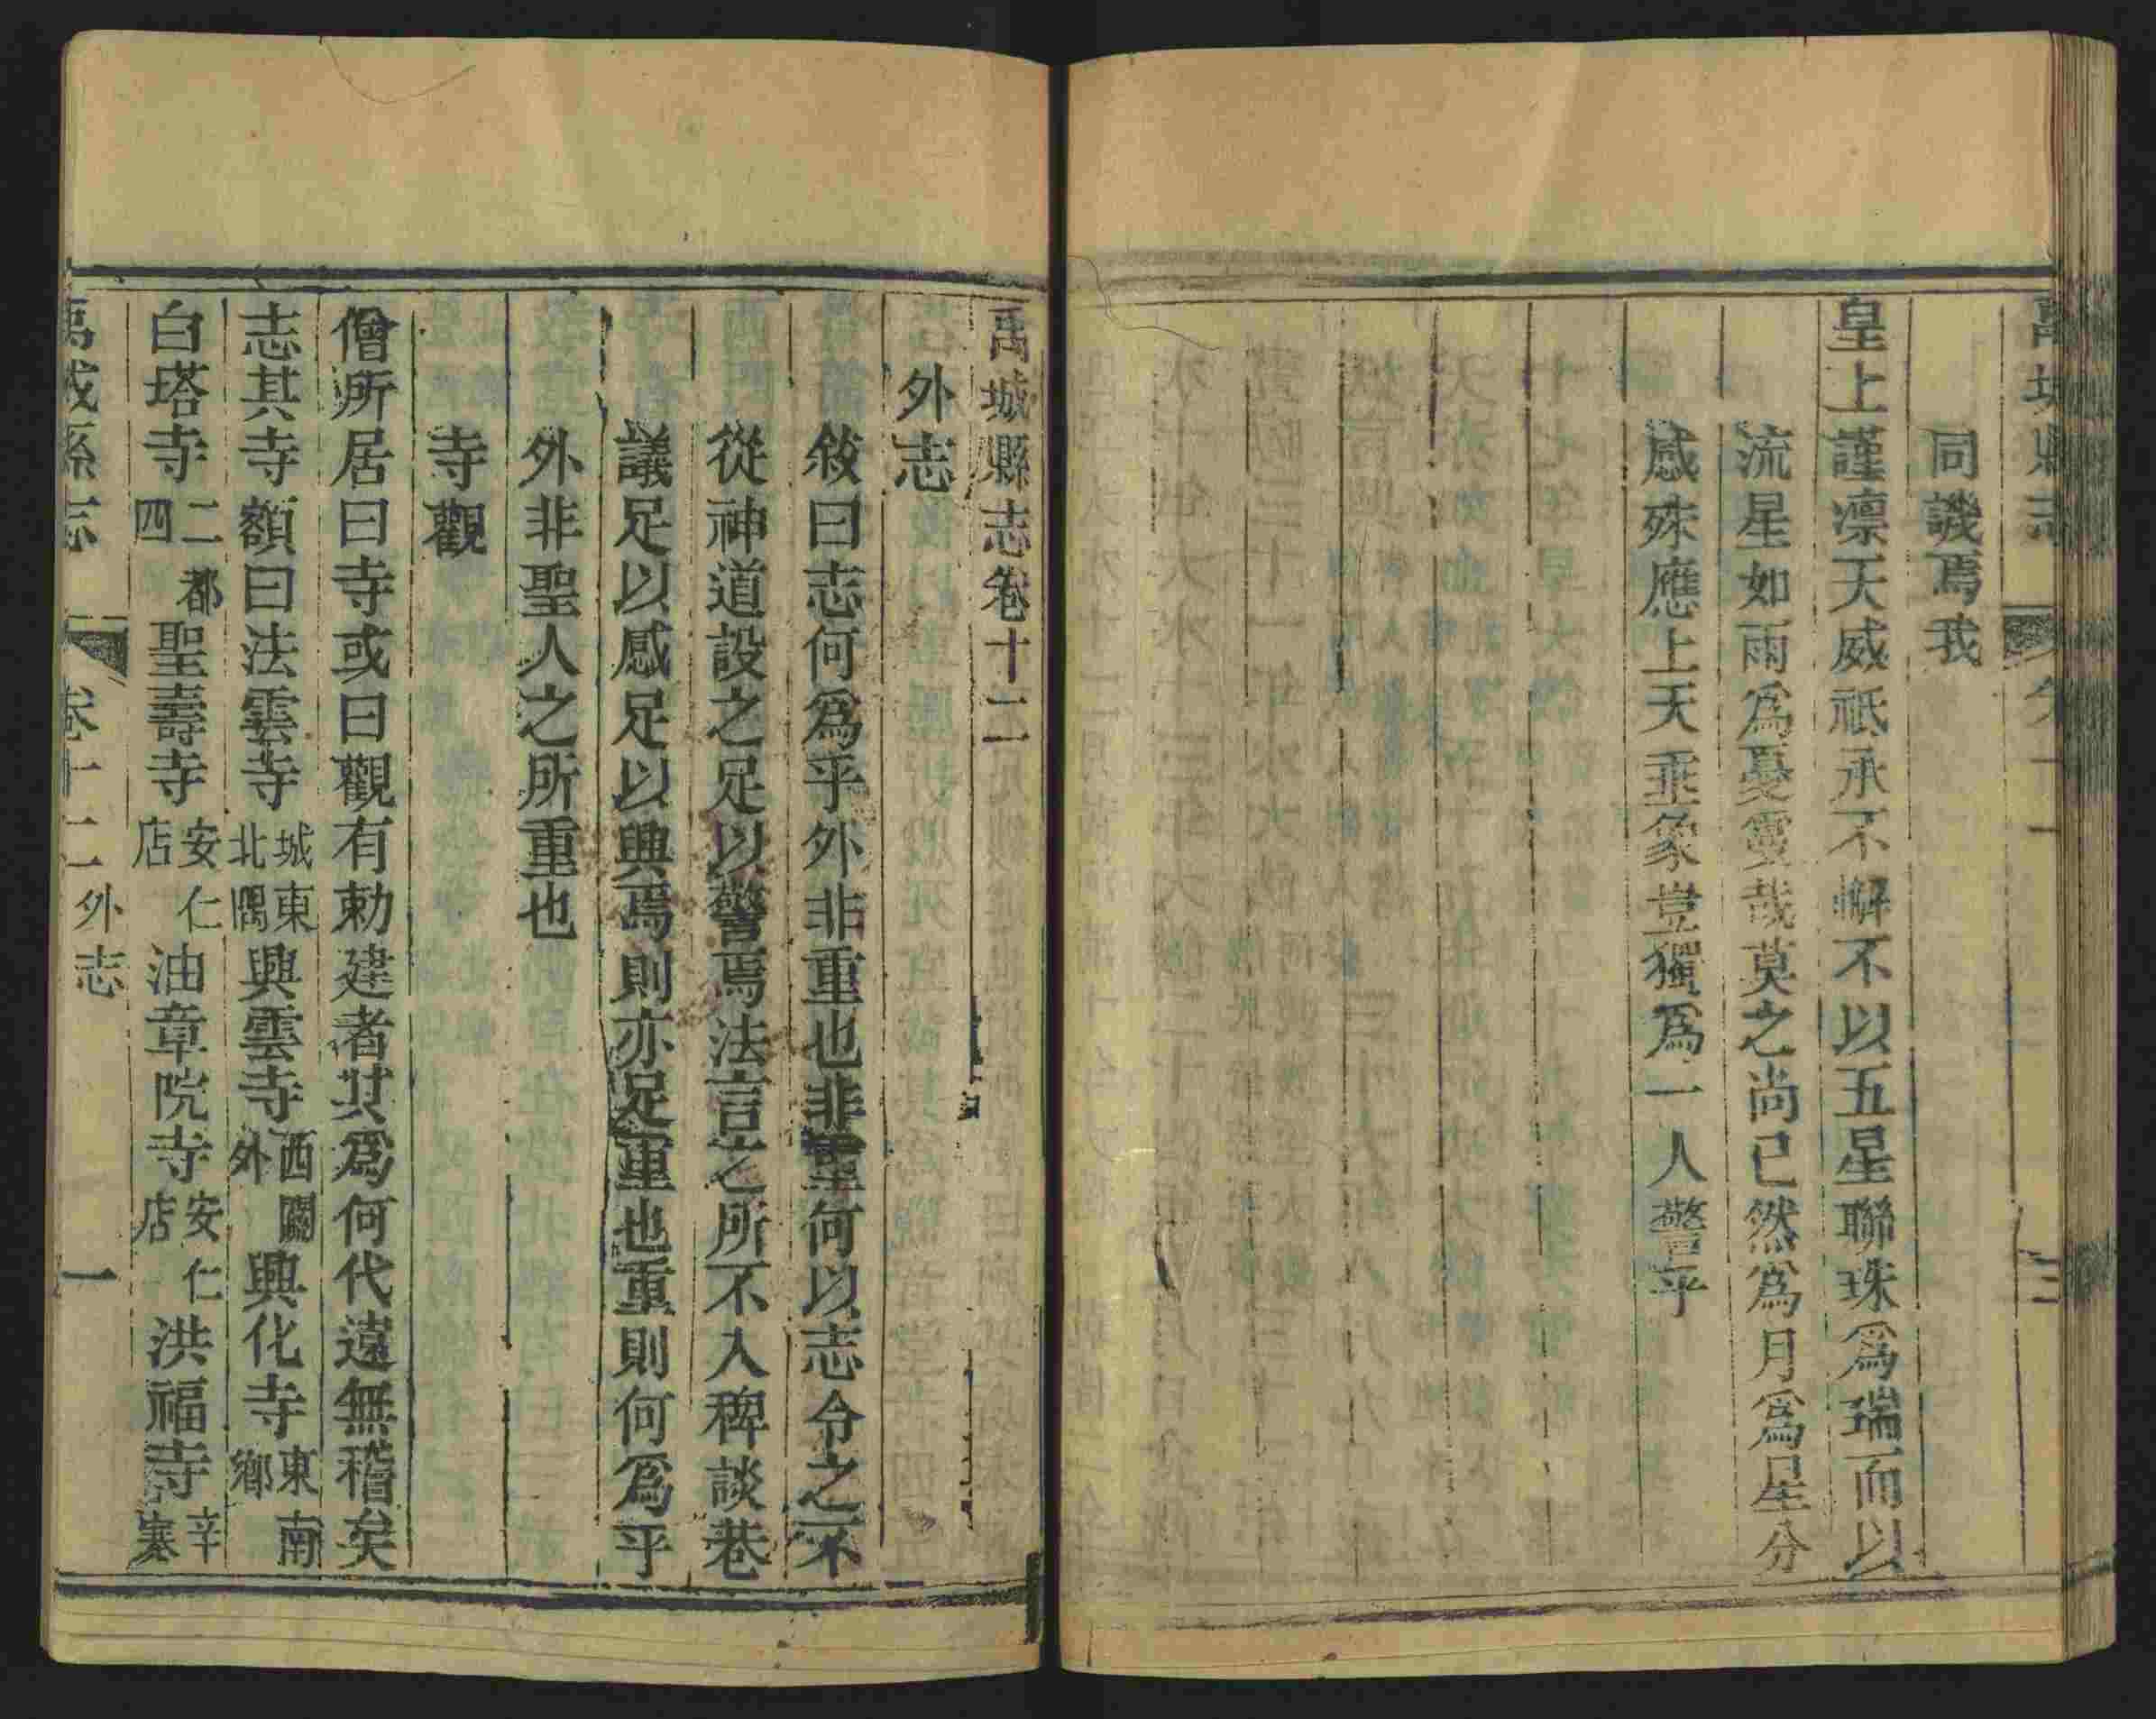 禹城縣志
同譏焉我
皇上謹凛天威祗承不懈不以五星聯珠爲瑞而以
流星如雨爲憂霙哉莫之尚已然爲月爲星分
感殊應上天垂象豈獨爲一人警乎
禹城縣志卷十二
外志
敘曰志何爲乎外非重也非聖何以志令之不
從神道設之足以警焉法言之所不入稗談巷
議足以感足以興焉則亦足重也重則何爲乎
外非聖人之所重也
寺觀
僧所居曰寺或曰觀有勅建者其爲何代遠無稽矣
志其寺額曰法雲寺城東北隅興雲寺西關外興化寺東南鄉
白塔寺二都四聖壽寺安仁店油章院寺安仁店洪福寺辛寨
禹城縣志 卷十二 外志 一